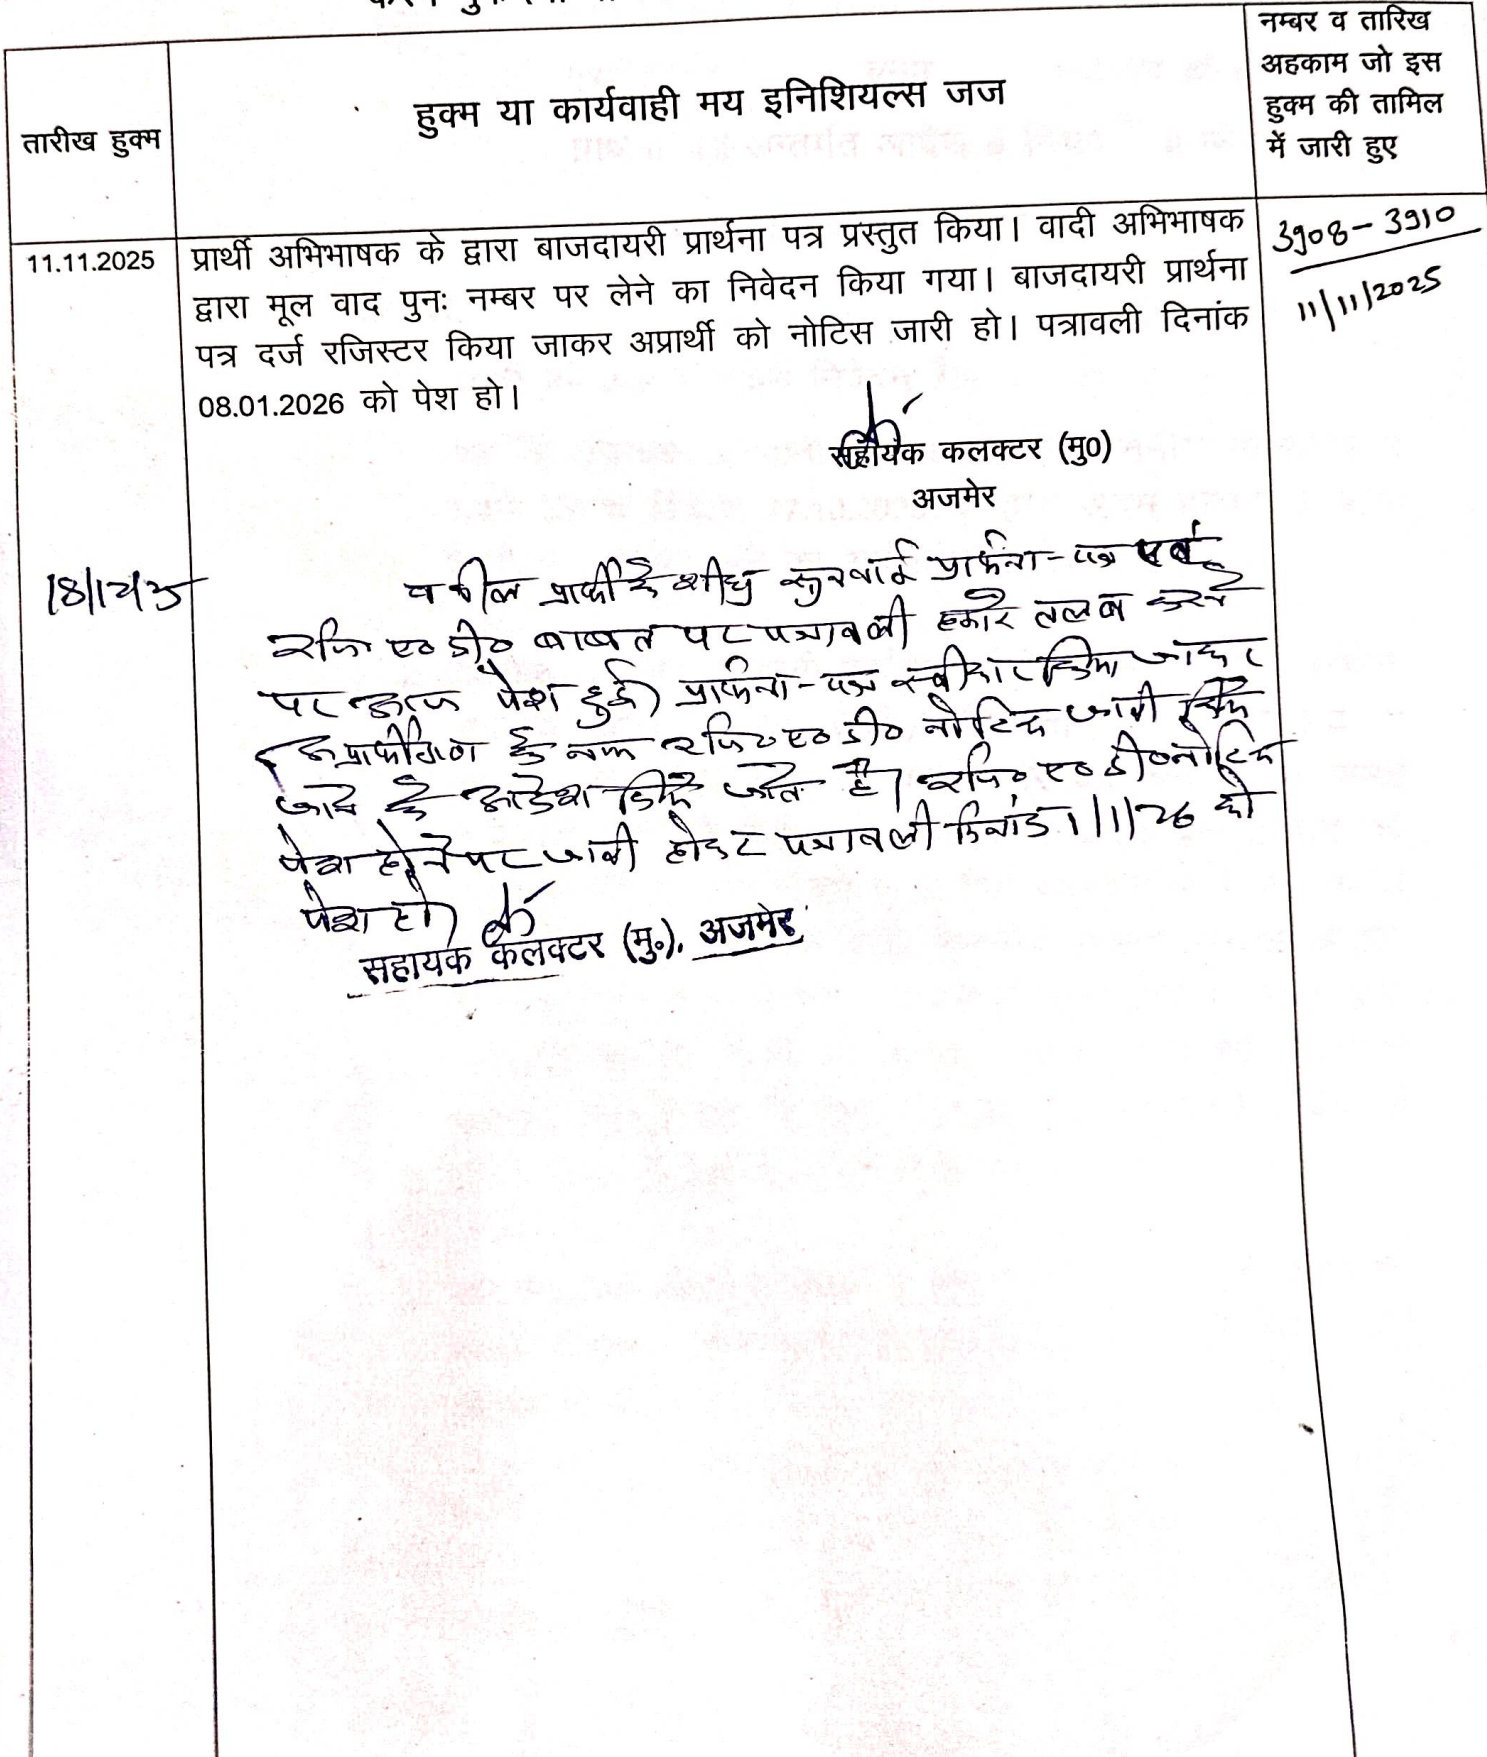 तारीख हुक्म
हुक्म या कार्यवाही मय इनिशियल्स जज
नम्बर व तारिख
अहकाम जो इस
हुक्म की तामिल
में जारी हुए
11.11.2025
प्रार्थी अभिभाषक के द्वारा बाजदायरी प्रार्थना पत्र प्रस्तुत किया। वादी अभिभाषक
द्वारा मूल वाद पुनः नम्बर पर लेने का निवेदन किया गया। बाजदायरी प्रार्थना
पत्र दर्ज रजिस्टर किया जाकर अप्रार्थी को नोटिस जारी हो। पत्रावली दिनांक
08.01.2026 को पेश हो।
3908-3910
11/11/2025
सहायक कलक्टर (मु0)
अजमेर
वकील प्रार्थी के शीघ्र सुनवाई प्रार्थना-पत्र एवं
रजि० ए० डी० बाबत पर पत्रावली हमारे तलब करने
पर आज पेश हुई। प्रार्थना-पत्र स्वीकार किया जाकर
अप्रार्थीगण के नाम रजि० ए० डी० नोटिस जारी किये
जाने के आदेश दिये जाते है। रजि० ए० डी० नोटिस
पेश होने पर जारी होकर पत्रावली दिनांक 1/1/26 को
पेश हो।
सहायक कलक्टर (मु०), अजमेर